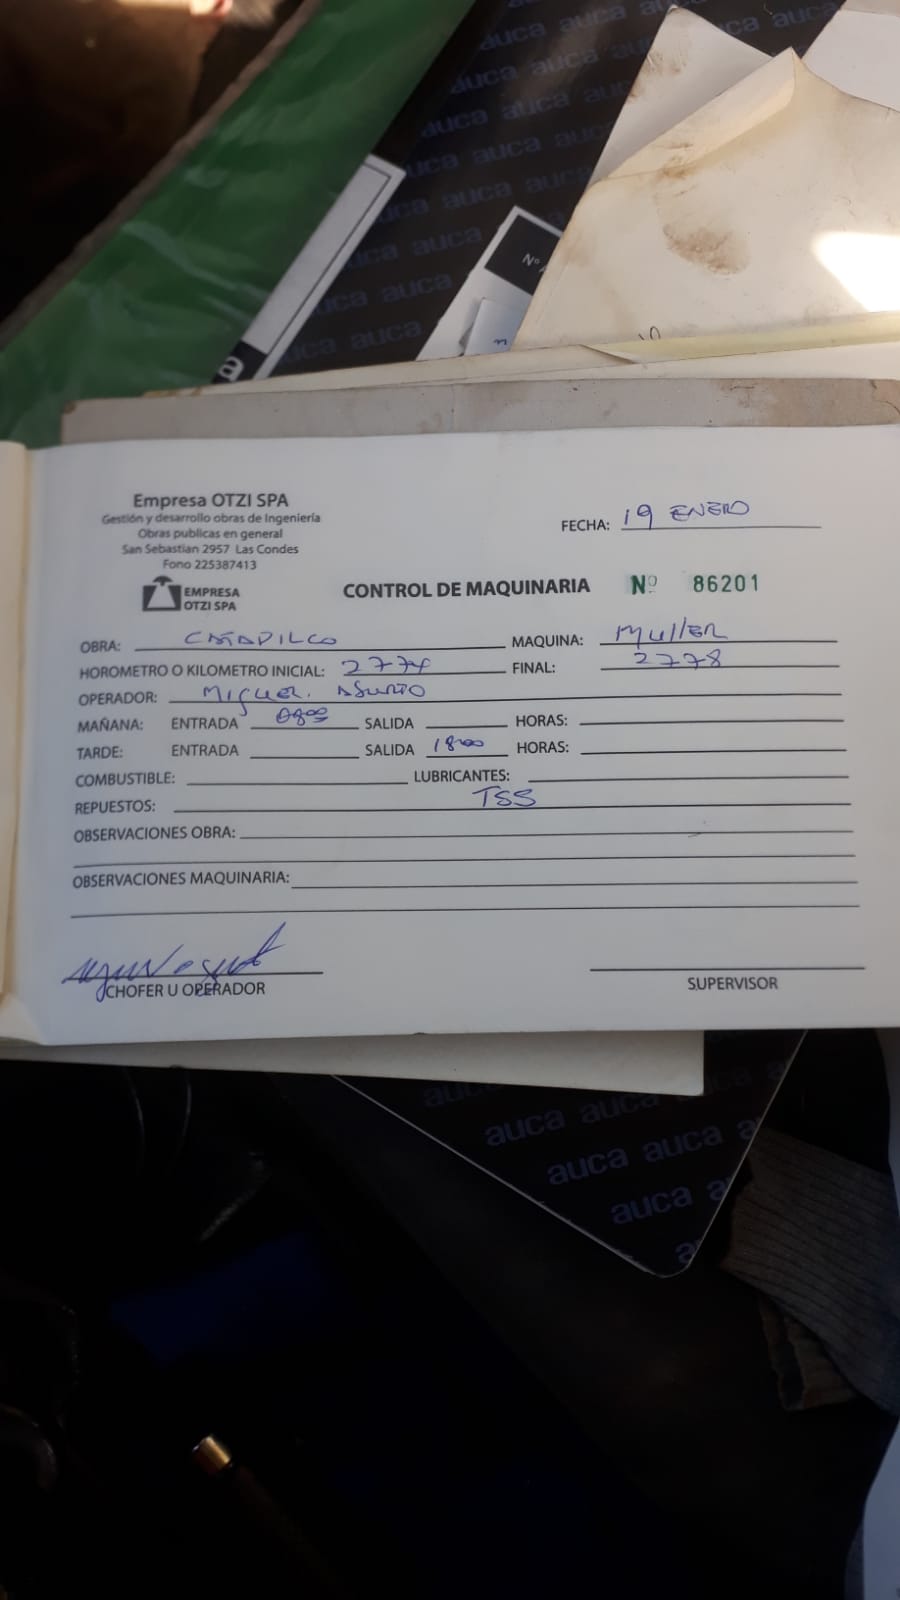 auca auca auca
auca auca auca
auca auca auca
auca auca auca
auca auca auca
auca auca
auca auca
auca auca
auca auca
a
Nº
Empresa OTZI SPA
Gestión y desarrollo obras de Ingeniería
Obras publicas en general
San Sebastian 2957 Las Condes
Fono 225387413
EMPRESA
OTZI SPA
FECHA: 19 ENERO
CONTROL DE MAQUINARIA Nº 86201
OBRA: CATAPILCO MAQUINA: MullER
HOROMETRO O KILOMETRO INICIAL: 2774 FINAL: 2778
OPERADOR: MIguel. ASURTO
MAÑANA: ENTRADA 0800 SALIDA HORAS:
TARDE: ENTRADA SALIDA 1800 HORAS:
COMBUSTIBLE: LUBRICANTES:
REPUESTOS: TSS
OBSERVACIONES OBRA:
OBSERVACIONES MAQUINARIA:
CHOFER U OPERADOR SUPERVISOR
auca auca auca a
auca auca a
auca auca
auca a
a